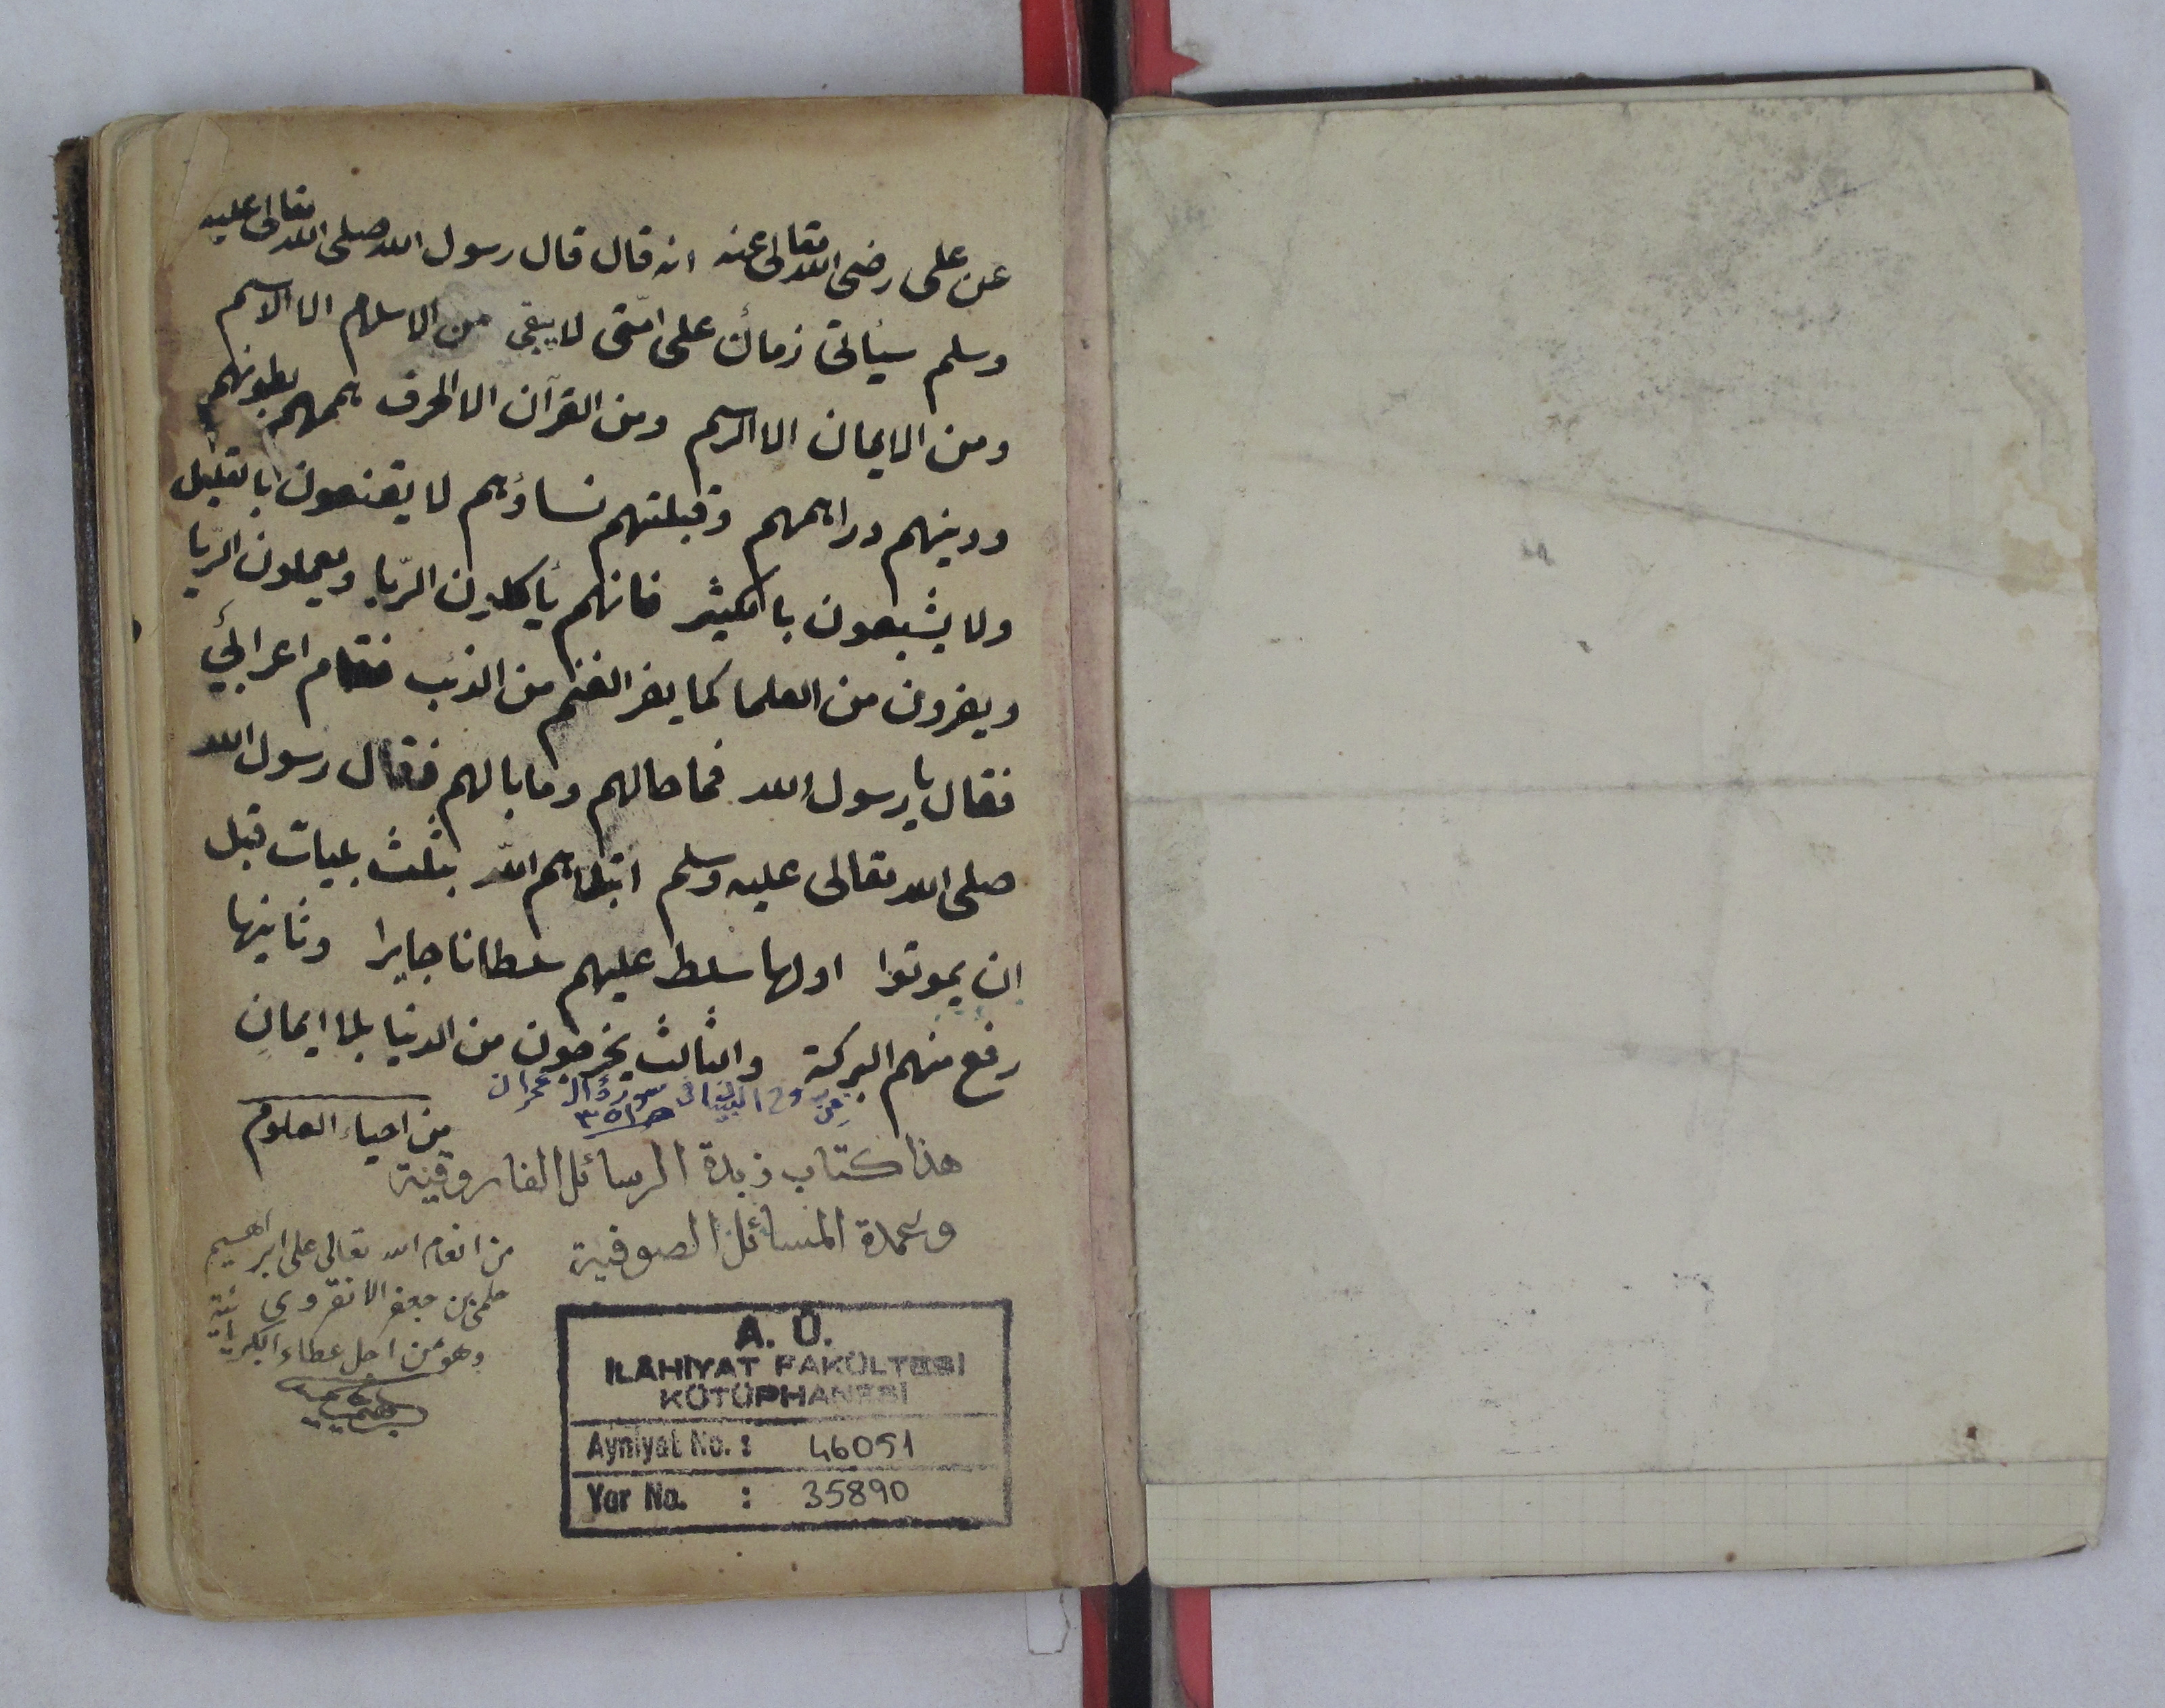 عن على رضى الله تعالى عنه انه قال قال رسول الله صلى الله تعالى عليه
وسلم سيأتى زمان على امّتى لا يبقى من الاسلام الا الاسم
ومن الايمان الا الرسم ومن القرآن الا الحرف همهم بطونهم
ودينهم دراهمهم وقبلتهم نساؤهم لا يقنعون بالقليل
ولا يشبعون بالكثير فانهم يأكلون الرّبا ويعملون الرّيا
ويفرون من العلما كما يفر الغنم من الذئب فقام اعرابىّ
فقال يا رسول الله فما حالهم وما بالهم فقال رسول الله
صلى الله تعالى عليه وسلم ابتلاهم الله بثلث بليات قبل
ان يموتوا اولها سلط عليهم سلطانا جايرا وثانيها
رفع منهم البركة والثالث يخرجون من الدنيا بلا ايمان
عن روح البيان فى سورة آل عمران
من احياء العلوم
هذا كتاب زبدة الرسائل الفاروقية
وعمدة المسائل الصوفية
من انعام الله تعالى على ابراهيم
حلمى بن جعفر الانقروى
وهو من اجل عطاء
A. Ü.
İLÂHİYAT FAKÜLTESİ
KÜTÜPHANESİ
Ayniyat No. : 46051
Yer No. : 35890